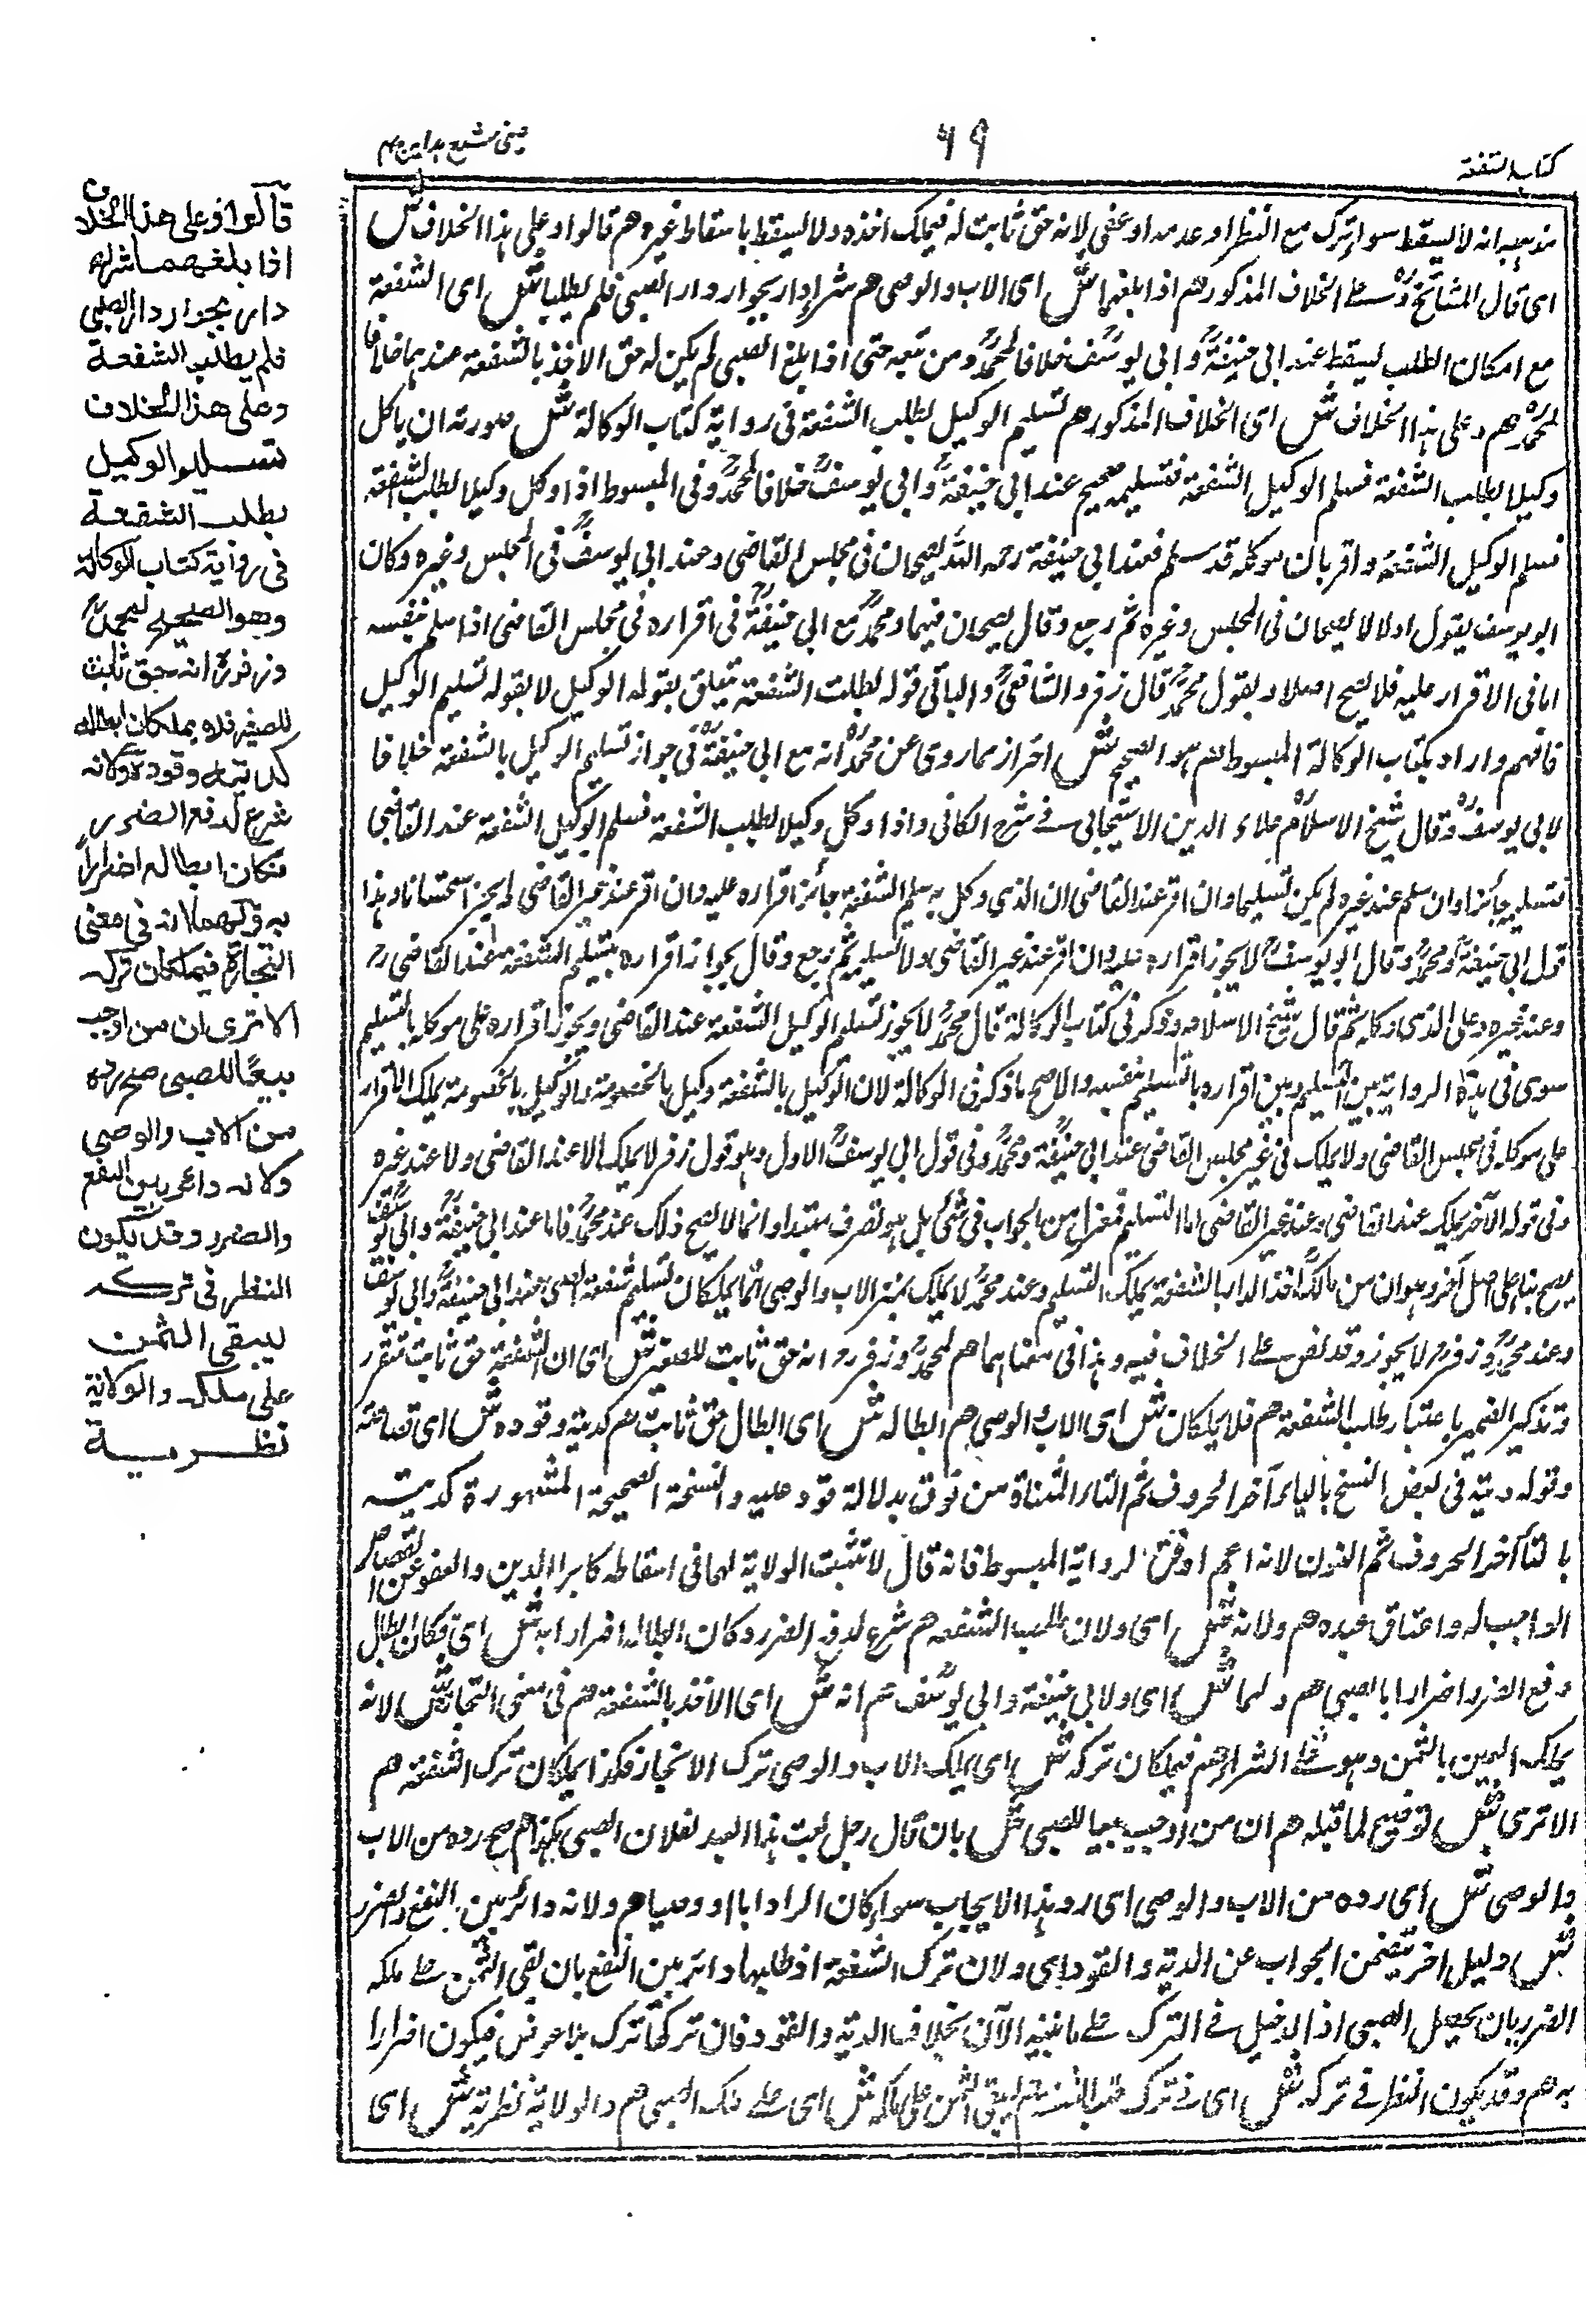 كتاب الشفعة
٦٩
عينى شرح هداية ج٤
مذهبه انه لا يسقط سواء ترك مع النظر او عدمه او عفى لانه حق ثابت له فيملك اخذه ولا يسقط باسقاط غيره هم قالوا وعلى هذا الخلاف ش
اى قال المشائخ رح على الخلاف المذكور هم اذا بلغهما ش اى الاب والوصى هم شراء دار بجوار دار الصبى فلم يطلبا ش اى الشفعة
مع امكان الطلب يسقط عند ابى حنيفة رح و ابى يوسف خلافا لمحمد رح ومن تبعه حتى اذا بلغ الصبى لم يكن له حق الاخذ بالشفعة عندهما خلافا
لمحمد رح هم وعلى هذا الخلاف ش اى الخلاف المذكور هم تسليم الوكيل بطلب الشفعة فى رواية كتاب الوكالة ش صورته ان ياكل
وكيلا بطلب الشفعة فسلم الوكيل الشفعة فتسليمه صحيح عند ابى حنيفة رح وابى يوسف رح خلافا لمحمد رح وفى المبسوط اذا وكل وكيلا لطلب الشفعة
فسلم الوكيل الشفعة واقر بان موكله قد سلم فعند ابى حنيفة رحمه الله يصحان فى مجلس القاضى وعند ابى يوسف رح فى المجلس وغيره وكان
ابو يوسف يقول اولا لا يصحان فى المجلس وغيره ثم رجع وقال يصحان فيهما ومحمد رح مع ابى حنيفة رح فى اقراره فى مجلس القاضى اذا سلم بنفسه
امافى الاقرار عليه فلا يصح اصلا وبقول محمد رح قال زفر والشافعى رح والباقى قوله بطلب الشفعة يتعلق بقوله الوكيل لا بقوله تسليم الوكيل
فافهم واراد بكتاب الوكالة المبسوط هم هو الصحيح ش احتراز مما روى عن محمد رح انه مع ابى حنيفة رح فى جواز تسليم الوكيل بالشفعة خلافا
لابى يوسف رح وقال شيخ الاسلام علاء الدين الاسبيجابى فى شرح الكافى واذا وكل وكيلا لطلب الشفعة فسلم الوكيل الشفعة عند القاضى
فتسليمه جائز وان سلم عند غيره لم يكن تسليما وان اقر عند القاضى ان الذى وكل به سلم الشفعة جائز اقراره عليه وان اقر عند غير القاضى لم يجز استحسانا وهذا
قول ابى حنيفة رح ومحمد رح وقال ابو يوسف رح لا يجوز اقراره عليه وان اقر عند غير القاضى ولا تسليم ثم رجع وقال يجواز اقراره بتسليم الشفعة عند القاضى رح
وعند غيره وعلى الذى وكله ثم قال شيخ الاسلام وذكر فى كتاب الوكالة قال محمد رح لا يجوز تسليم الوكيل الشفعة عند القاضى ويجوز اقراره على موكله بالتسليم
سوى فى هذه الرواية بين التسليم وبين اقراره بالتسليم بنفسه والاصح ما ذكر فى الوكالة لان الوكيل بالشفعة وكيل بالخصومة والوكيل بالخصومة يملك الاقرار
على موكله فى مجلس القاضى ولا يملك فى غير مجلس القاضى عند ابى حنيفة رح ومحمد رح وفى قول ابى يوسف رح الاول وهو قول زفر لا يملك الا عند القاضى ولا عند غيره
وفى قوله الآخر يملك عند القاضى وعند غير القاضى اما التسليم فبمعزل من الجواب فى شئ بل هو تصرف مبتدا وانما لا يصح ذلك عند محمد رح فاما عند ابى حنيفة رح وابى يوسف
يصح بناء على اصل آخر وهو ان من ملك اخذ الدار بالشفعة يملك التسليم وعند محمد رح لا يملك بمنزلة الاب والوصى انما يملكان تسليم شفعة الصبى عند ابى حنيفة رح وابى يوسف
وعند محمد رح وزفر رح لا يجوز وقد نص على الخلاف فيه وهذا فى معناهما هم لمحمد رح وزفر رح انه حق ثابت للصغير ش اى ان الشفعة حق ثابت تتقرر
وتذكير الضمير باعتبار طلب الشفعة هم فلا يملكان ش اى الاب والوصى هم ابطاله ش اى ابطال حق ثابت هم كديته وقوده ش اى قصاصه
وقوله ديته فى بعض النسخ بالياء آخر الحروف ثم التاء المثناة من فوق بدلالة قوده عليه والنسخة الصحيحة المشهورة كديته
بالتا آخر الحروف ثم النون لانه اعم اوفق لرواية المبسوط فانه قال لا تثبت الولاية لهما فى اسقاطه كابراء الدين والعفو عن القصاص
الواجب له واعتاق عبده هم ولانه ش اى ولان طلب الشفعة هم شرع لدفع الضرر وكان ابطاله اضرارا به ش اى فكان ابطال
دفع الضرر اضرارا بالصبى هم ولهما ش اى ولابى حنيفة وابى يوسف هم انه ش اى الاخذ بالشفعة هم فى معنى التجارة ش لانه
يملك العين بالثمن وهو على الشراء هم فيملكان تركه ش اى يملك الاب والوصى ترك الاتجار فكذا يملكان ترك الشفعة هم
الا ترى ش توضيح لما قبله هم ان من اوجب بيعا للصبى ش بان قال رجل بعت هذا العبد لفلان الصبى بكذا هم صح رده من الاب
والوصى ش اى رده من الاب والوصى اى رد هذا الايجاب سواء كان الراد ابا او وصيا هم ولانه دائر بين النفع والضرر
ش دليل اخر يتضمن الجواب عن الدية والقود اى ولان ترك الشفعة او طلبها دائر بين النفع بان بقى الثمن على ملكه
الضرر بان يحصل الصبى اذا الدخيل فى الترك على ما نبينه الآن بخلاف الدية والقود فان تركها ترك بلا عوض فيكون اضرارا
به هم وقد يكون النظر فى تركه ش اى فى ترك طلب الشفعة هم ليبقى الثمن على ملكه ش اى على ملك الصبى هم والولاية نظرية ش اى
قالوا وعلى هذا الخلاف
اذا بلغهما شراء
دار بجوار دار الصبى
فلم يطلبا الشفعة
وعلى هذا الخلاف
تسليم الوكيل
بطلب الشفعة
فى رواية كتاب الوكالة
وهو الصحيح لمحمد رح
وزفر رح انه حق ثابت
للصغير فلا يملكان ابطاله
كديته وقوده ولانه
شرع لدفع الضرر
فكان ابطاله اضرارا
به ولهما انه فى معنى
التجارة فيملكان تركه
الا ترى ان من اوجب
بيعًا للصبى صح رده
من الاب والوصى
ولانه دائر بين النفع
والضرر وقد يكون
النظر فى تركه
ليبقى الثمن
على ملكه والولاية
نظرية